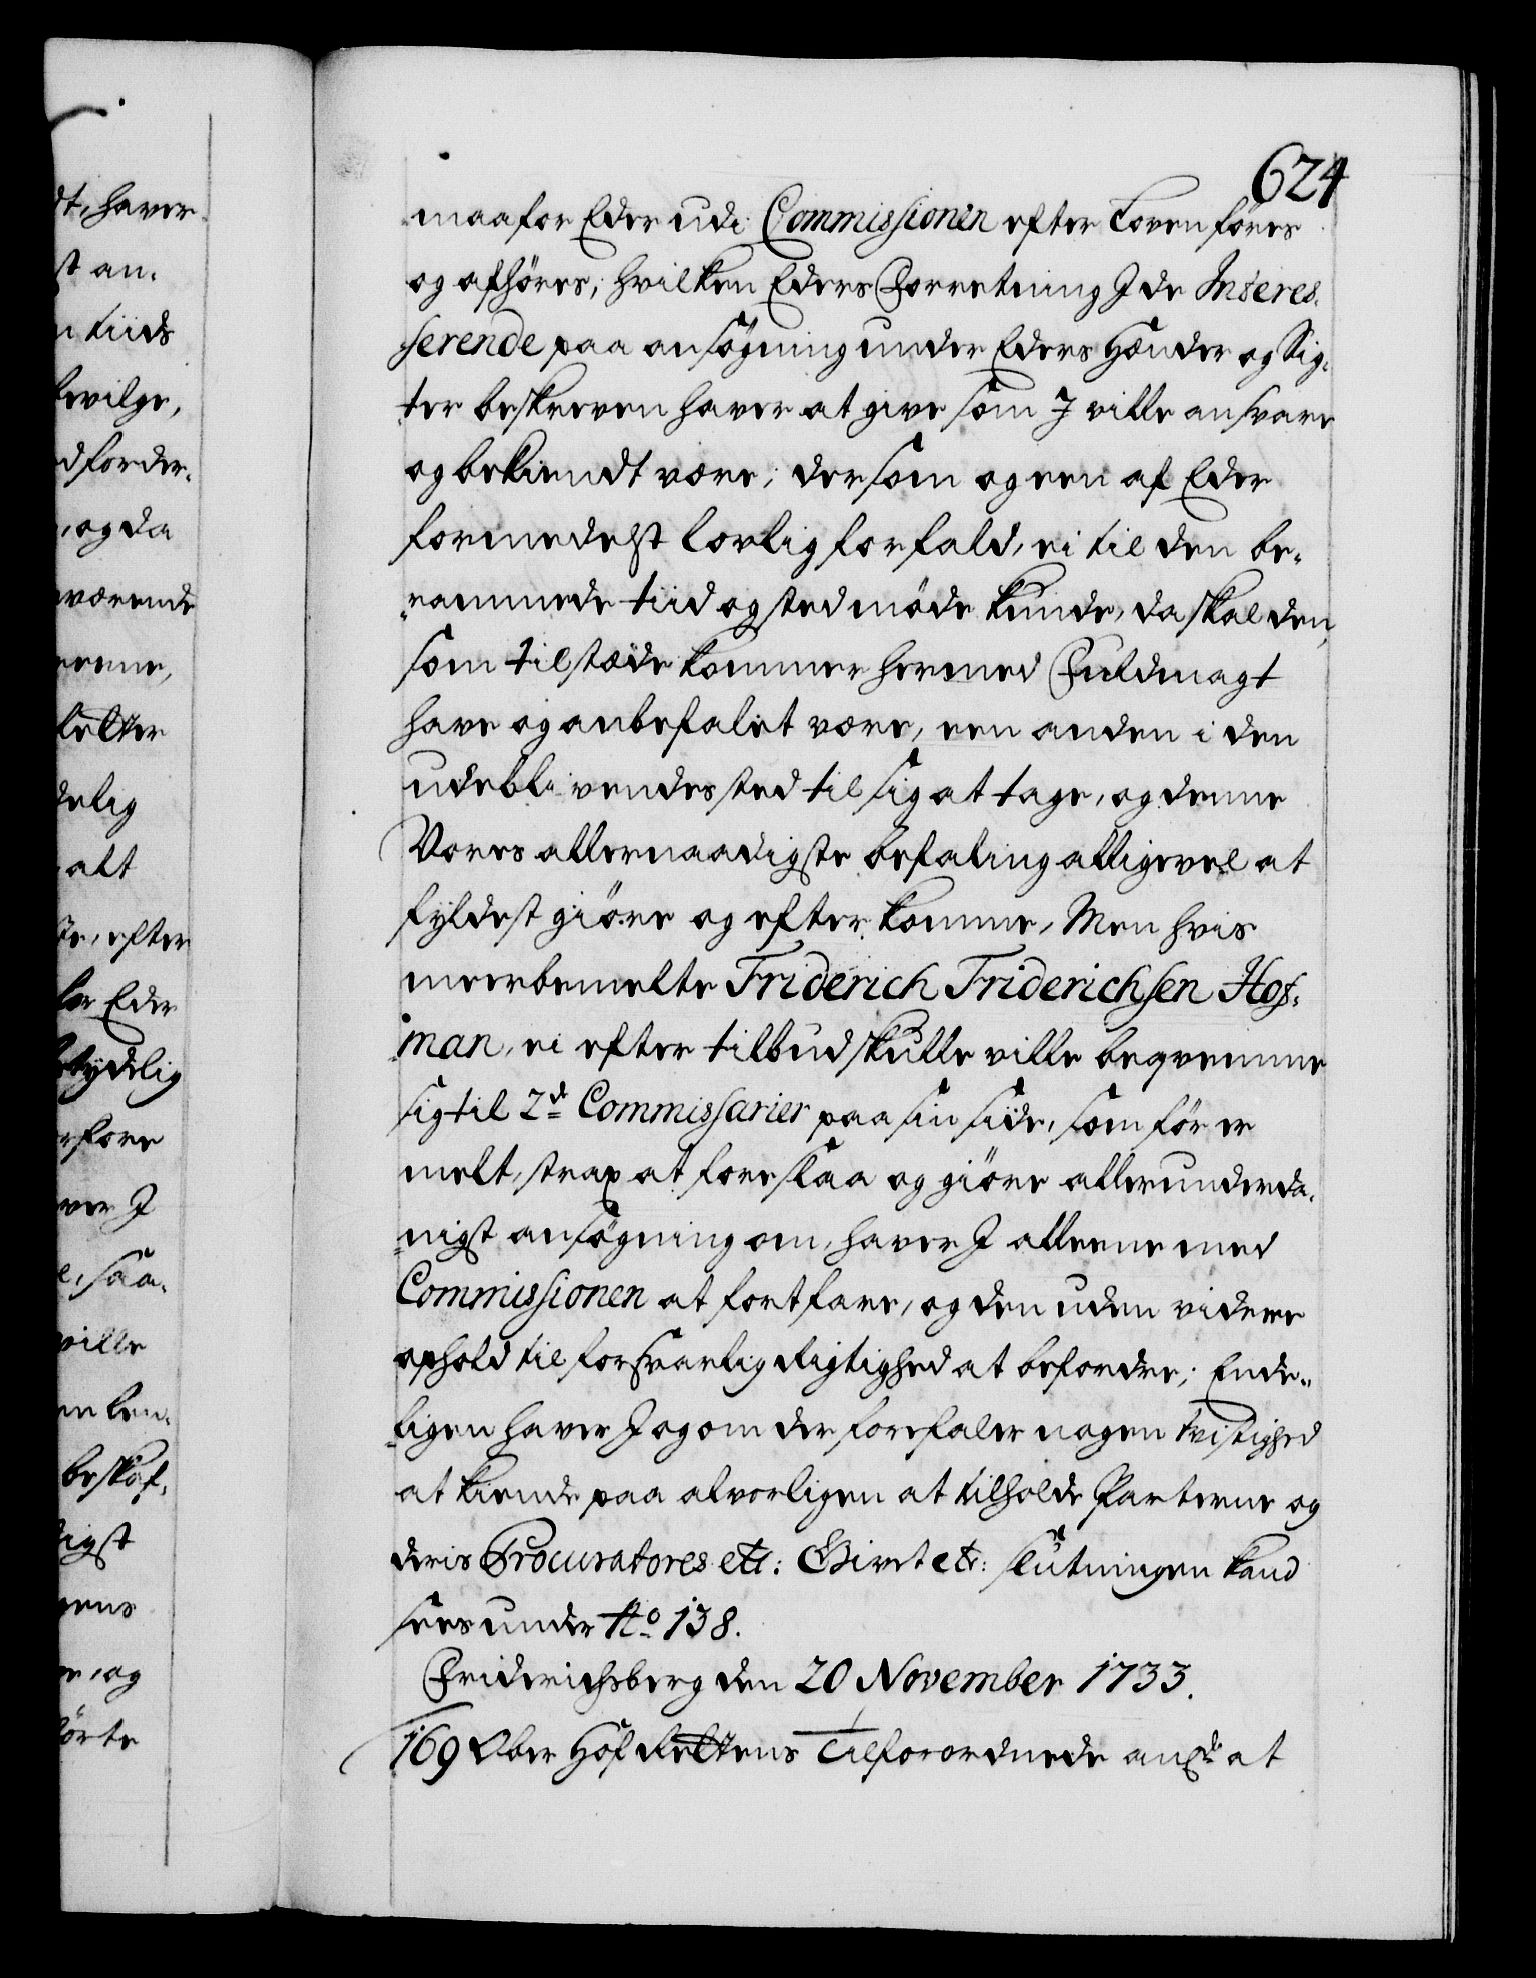 624
dt, haver
st an-
n tiids
bevilge,
dforder-
, og da
værende
erne,
lelter
delig
alt
te, efter
for Eder
tydelig
rfore
ver I
e, saa-
ville
en len-
beskaf-
igst
gens
er, og
hörte
maa for Eder udi Commissionen efter Loven föres
og afhöres, hvilken Eders Forretning I de Interes-
serende paa ansögning under Eders Hænder og Sig-
ter beskreven haver at give som I ville ansvare
og bekiendt være; dersom og een af Eder
formedelst lovlig forfald, ei til den be-
-rammede tiid og sted möde kunde, da skal den,
som tilstæde kommer hermed Fuldmagt
have og anbefalet være, een anden i den
udeblivendes sted til sig at tage, og denne
Vores allernaadigste befaling alligevel at
fyldestgiöre og efterkomme, Men hvis
meerbemelte Friderich Friderichsen Hof-
man, ei efter tilbud skulle ville beqvemme
sig til 2de Commissarier paa sin side, som för er
melt, strax at foreslaa og giöre allerunderda-
-nigst ansögning om, haver I alleene med
Commissionen at fortfare, og den uden videre
ophold til forsvarlig Rigtighed at befordre; Ende-
-ligen haver I og om der forefaler nogen tvistighed
at kiende paa alvorligen at tilholde Parterne og
deris Procuratores etc: Givet etc: slutningen kand
sees under No 138.
Friderichsberg den 20 November 1733.
169 Ober Hof Rettens Tilforordnede anbd at